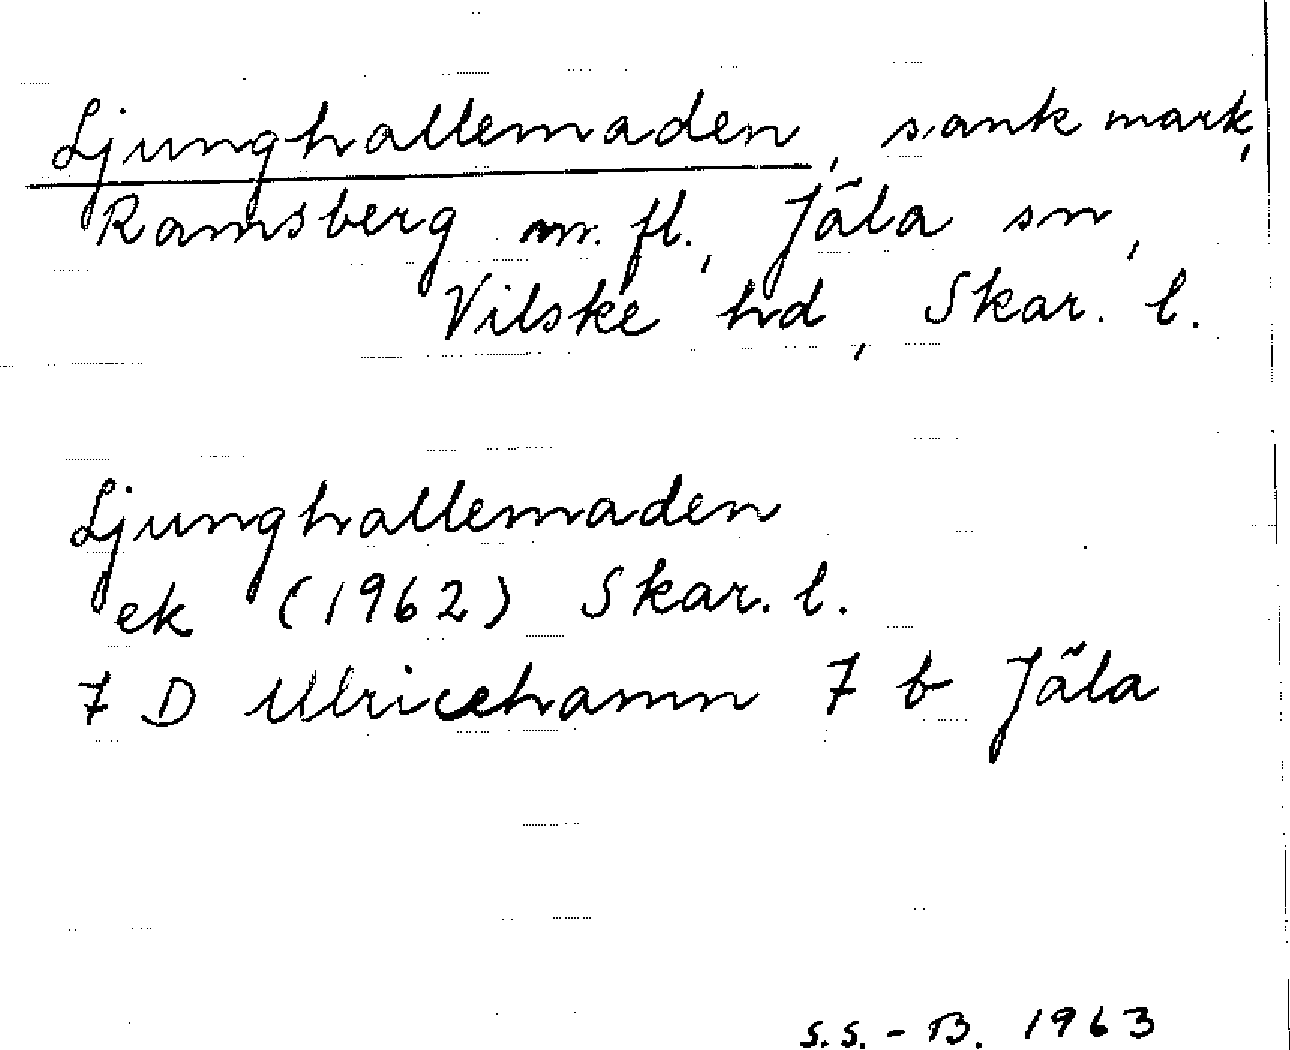 Ljunghallemaden, sank mark,
Ramsberg m. fl., Jäla sn,
Vilske hd, Skar. l.
Ljunghallemaden
ek (1962) Skar. l.
7 D Ulricehamn 7 b Jäla
S.S.-B. 1963